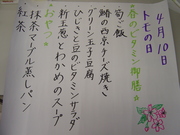 4月10日
トモの日
春のビタミン御膳
筍ご飯
鰆の西京チーズ焼き
グリーン玉子豆腐
ひじきと豆のビタミンサラダ
新玉葱とわかめのスープ
おやつ
抹茶マーブル蒸しパン
紅茶